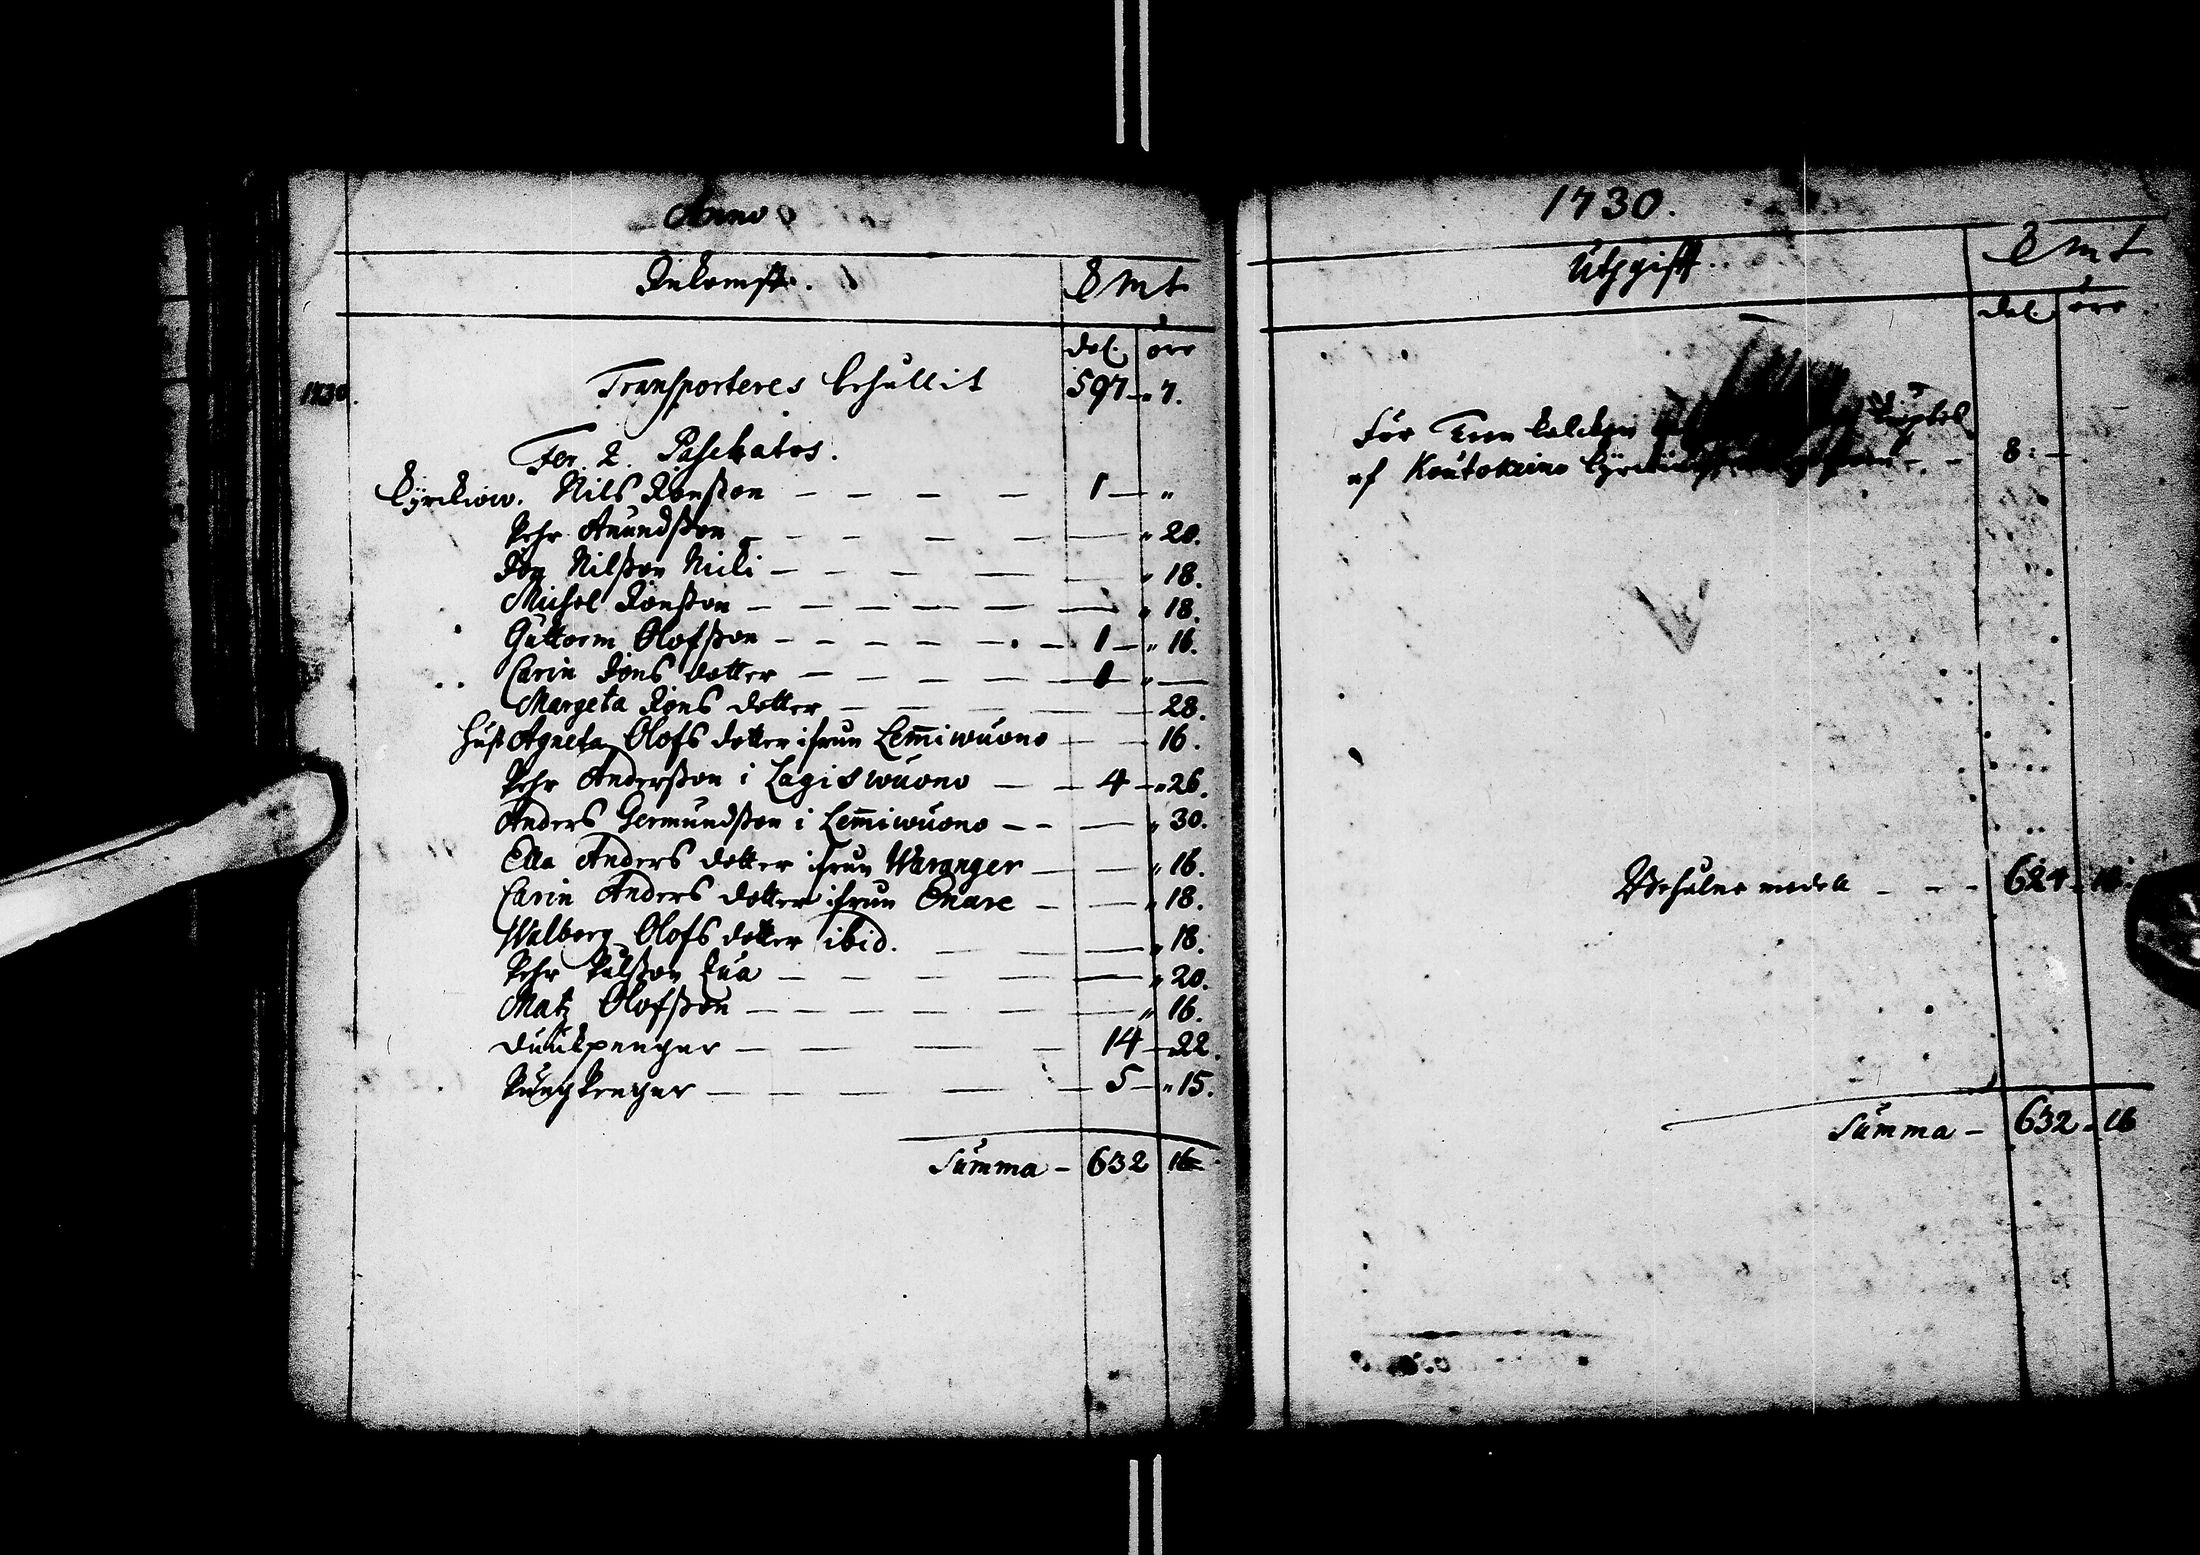 Anno
Inkomst.
D Mt
dal. öre
1730. Transporteres behållit 597 - " 7.
Fer. 2. Paschatos.
Kyrckiow. Nils Jonsson — — — — 1 — "
Pehr Amundsson — — — — — " 20.
Jon Nilsson Niki — — — — — " 18.
Michel Jonsson — — — — — — " 18.
Guttorm Olofsson — — — — — 1 — " 16.
Carin Jons dotter — — — — — 1 " —
Margeta Jons dotter — — — — — 28.
Hust Agneta Olofs dotter ifrån Lem̄iwuono — — 16.
Pehr Andersson i Lagiswuono — — 4 — " 26.
Anders Germundsson i Lem̄iwuono — — — " 30.
Ella Anders dotter ifrån Waranger — — " 16.
Carin Anders dotter ifrån Enare — — " 18.
Walborg Olofs dotter ibid. — — — " 18.
Pehr Pålsson Kua — — — — — " 20.
Matz Olofsson — — — — — — " 16.
Diuukpengar — — — — 14 — " 22.
Pungpengar — — — — — 5 — " 15.
Summa — 632 16
1730.
Uthgifft.
D Mt
dal. öre
För Tenn kalcken köptes
af Koutokeino — 8: —
Behålne medell — — — 624 - 16.
Summa — 632 - 16